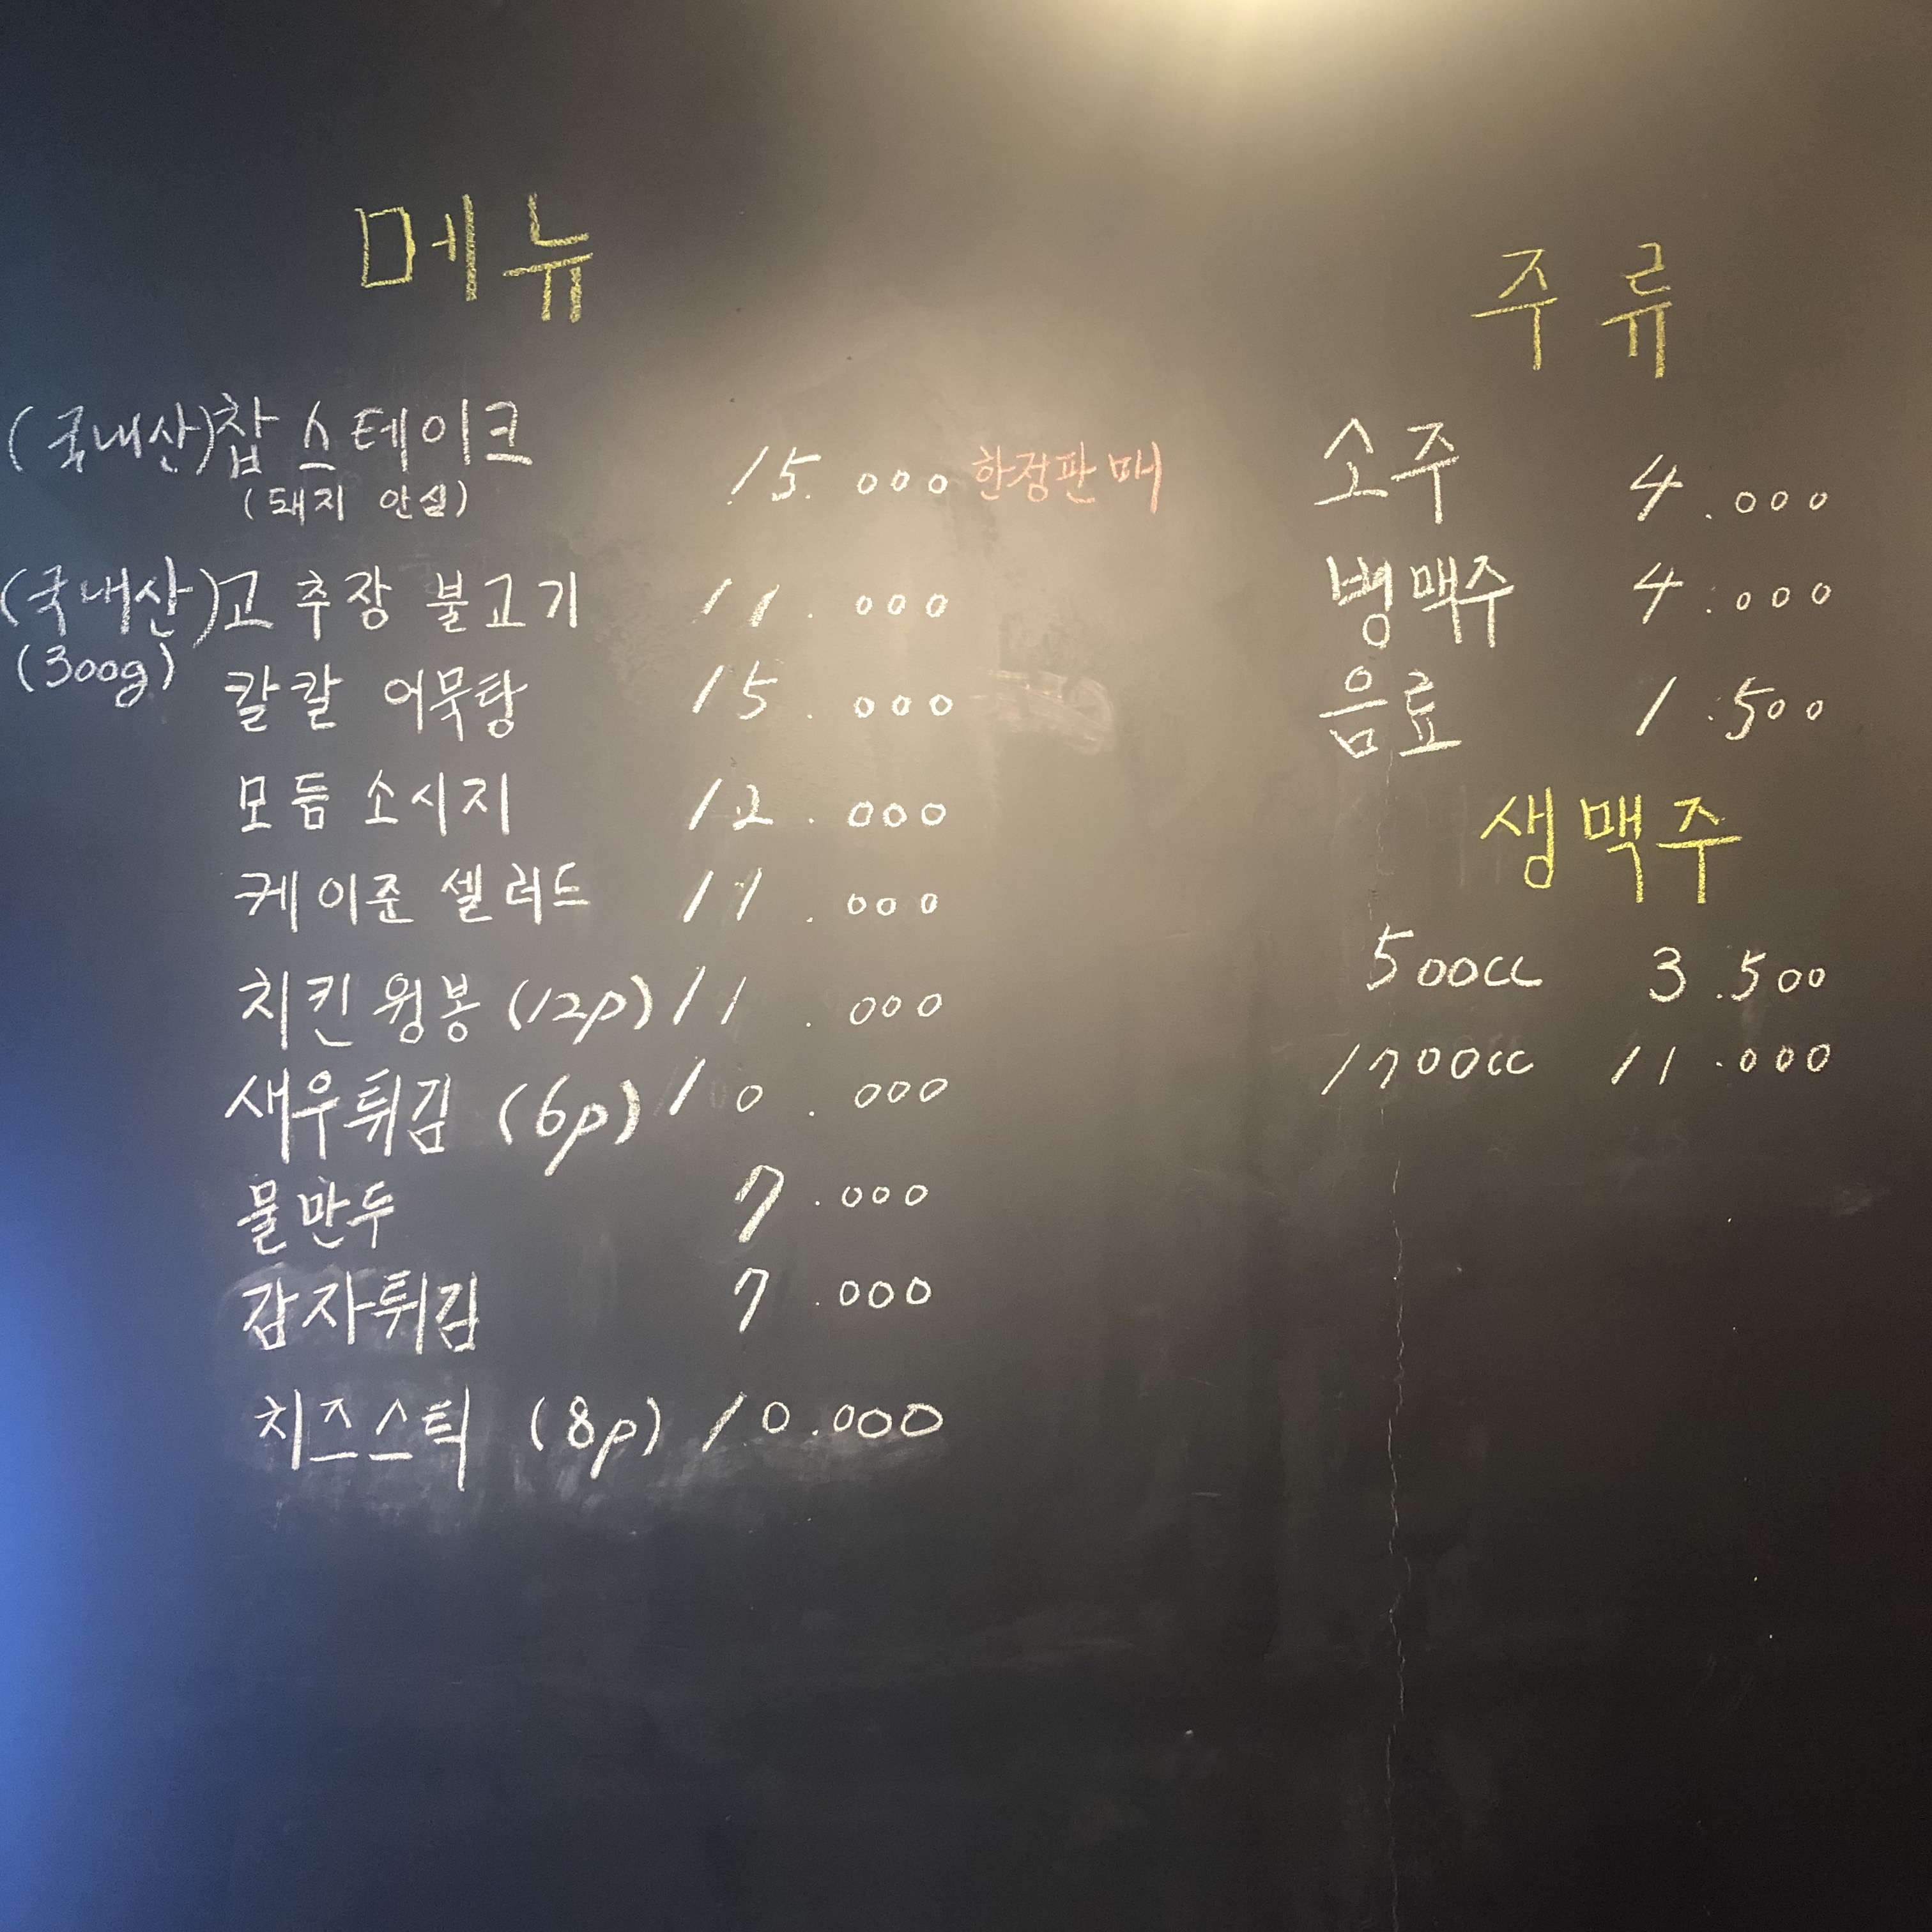 메뉴
(국내산)찹 스테이크 15.000 한정판매
(돼지 안심)
(국내산)고추장 불고기 11.000
(300g)
칼칼 어묵탕 15.000
모듬 소시지 12.000
케이준 셀러드 11.000
치킨 윙봉 (12p) 11.000
새우튀김 (6p) 10.000
물만두 7.000
감자튀김 7.000
치즈스틱 (8p) 10.000
주류
소주 4.000
병맥주 4.000
음료 1.500
생맥주
500cc 3.500
1700cc 11.000